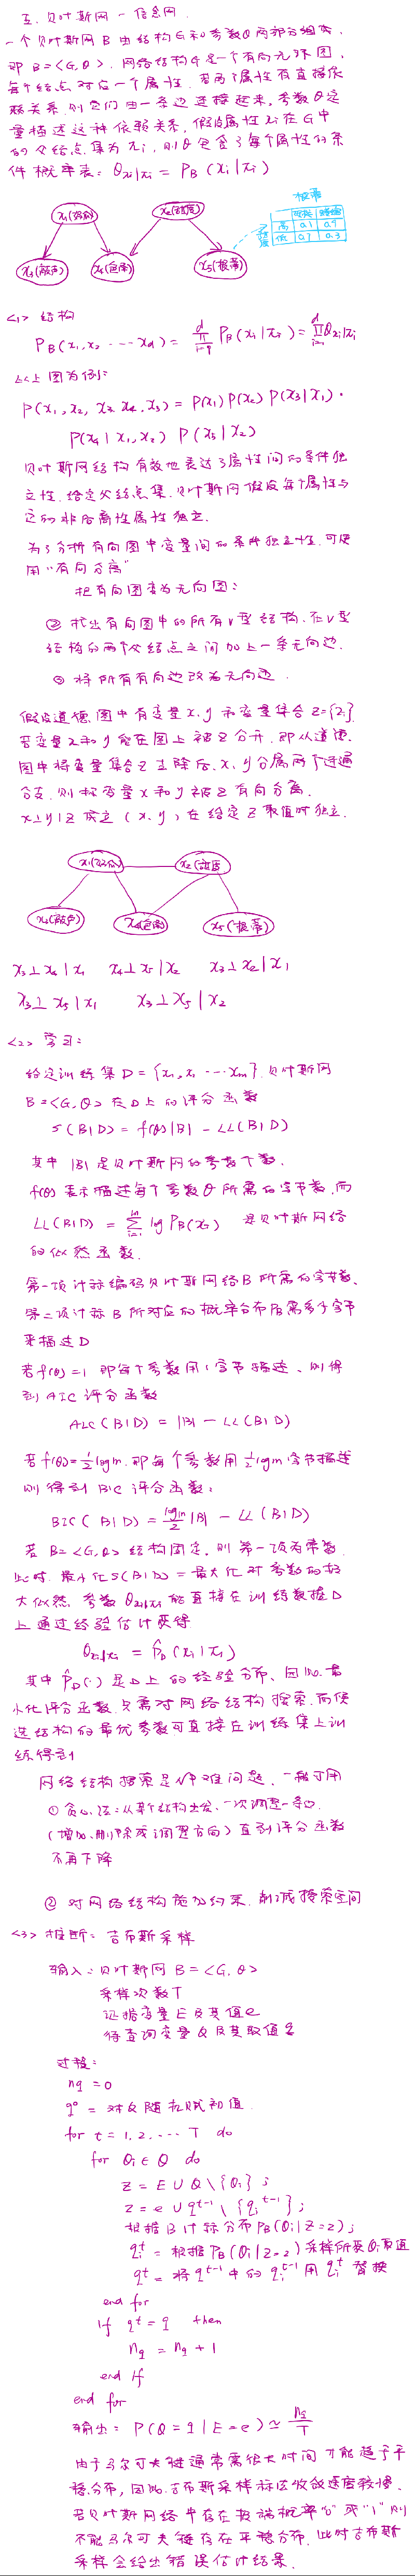 五. 贝叶斯网 - 信念网.
一个贝叶斯网 B 由结构G和参数θ两部分组成,
即 B=<G,θ>. 网络结构G是一个有向无环图,
每个结点对应一个属性. 若两个属性有直接依
赖关系, 则它们由一条边连接起来. 参数θ定
量描述这种依赖关系, 假设属性xi在G中
的父结点集为πi, 则θ包含了每个属性的条
件概率表: θxi|πi = PB(xi|πi)
根蒂
x1(好瓜) x2(甜度)
硬挺 蜷缩
甜度 高 0.1 0.9
低 0.7 0.3
x3(敲声) x4(色泽) x5(根蒂)
<1> 结构
PB(x1,x2 ···· xd) = ∏ PB(xi|πi) = ∏ θxi|πi
以上图为例:
P(x1, x2, x3, x4, x5) = P(x1) P(x2) P(x3|x1) ·
P(x4|x1,x2) P(x5|x2)
贝叶斯网结构有效地表达了属性间的条件独
立性. 给定父结点集, 贝叶斯网假设每个属性与
它的非后裔属性独立.
为了分析有向图中变量间的条件独立性, 可使
用"有向分离"
把有向图变为无向图:
① 找出有向图中的所有V型结构, 在V型
结构的两个父结点之间加上一条无向边.
② 将所有有向边改为无向边.
假设道德图中有变量x,y和变量集合Z={zi}
若变量x和y能在图上被Z分开, 即从道德
图中将变量集合Z去除后, x,y分属两个连通
分支, 则称变量x和y被Z有向分离.
x⊥y|Z 成立 (x,y) 在给定Z取值时独立.
x1(好瓜) x2(甜度)
x3(敲声) x4(色泽) x5(根蒂)
x3⊥x4|x1 x4⊥x5|x2 x3⊥x2|x1
x3⊥x5|x1 x3⊥x5|x2
<2> 学习:
给定训练集D={x1,x2 ···xm}, 贝叶斯网
B=<G,θ> 在D上的评分函数
S(B|D) = f(θ)|B| - LL(B|D)
其中|B|是贝叶斯网的参数个数.
f(θ)表示描述每个参数θ所需的字节数, 而
LL(B|D) = ∑ log PB(xi) 是贝叶斯网络
的似然函数.
第一项计算编码贝叶斯网络B所需的字节数,
第二项计算B所对应的概率分布PB需多少字节
来描述D
若f(θ)=1 即每个参数用1字节描述, 则得
到AIC评分函数
AIC(B|D) = |B| - LL(B|D)
若f(θ)=½logm, 即每个参数用½logm字节描述
则得到BIC评分函数:
BIC(B|D) = logm/2 |B| - LL(B|D)
若B=<G,θ>结构固定, 则第一项为常数.
此时, 最小化S(B|D)=最大化对参数的极
大似然. 参数θxi|πi能直接在训练数据D
上通过经验估计获得
θxi|πi = P̂D(xi|πi)
其中P̂D(·)是D上的经验分布, 因此. 最
小化评分函数, 只需对网络结构搜索, 而候
选结构的最优参数可直接在训练集上训
练得到
网络结构搜索是NP难问题, 一般可用
① 贪心法: 从某个结构出发, 一次调整一条边.
(增加、删除或调整方向) 直到评分函数
不再下降
② 对网络结构施加约束, 削减搜索空间
<3> 推断: 吉布斯采样
输入: 贝叶斯网 B=<G,θ>
采样次数T
证据变量E及其值e
待查询变量Q及其取值q
过程:
nq = 0
q⁰ = 对Q随机赋初值
for t = 1,2,···· T do
for Qi∈Q do
Z = E∪Q\{Qi};
z = e∪qt-1\{qit-1};
根据B计算分布PB(Qi|Z=z);
qit = 根据PB(Qi|Z=z)采样所获Qi取值
qt = 将qt-1中的qit-1用qit替换
end for
If qt=q then
nq = nq+1
end If
end for
输出: P(Q=q|E=e) ≃ nq/T
由于马尔可夫链通常需很长时间才能趋于平
稳分布, 因此. 吉布斯采样算法收敛速度较慢.
若贝叶斯网络中存在极端概率"0"或"1"则
不能马尔可夫链存在平稳分布, 此时吉布斯
采样会给出错误估计结果.